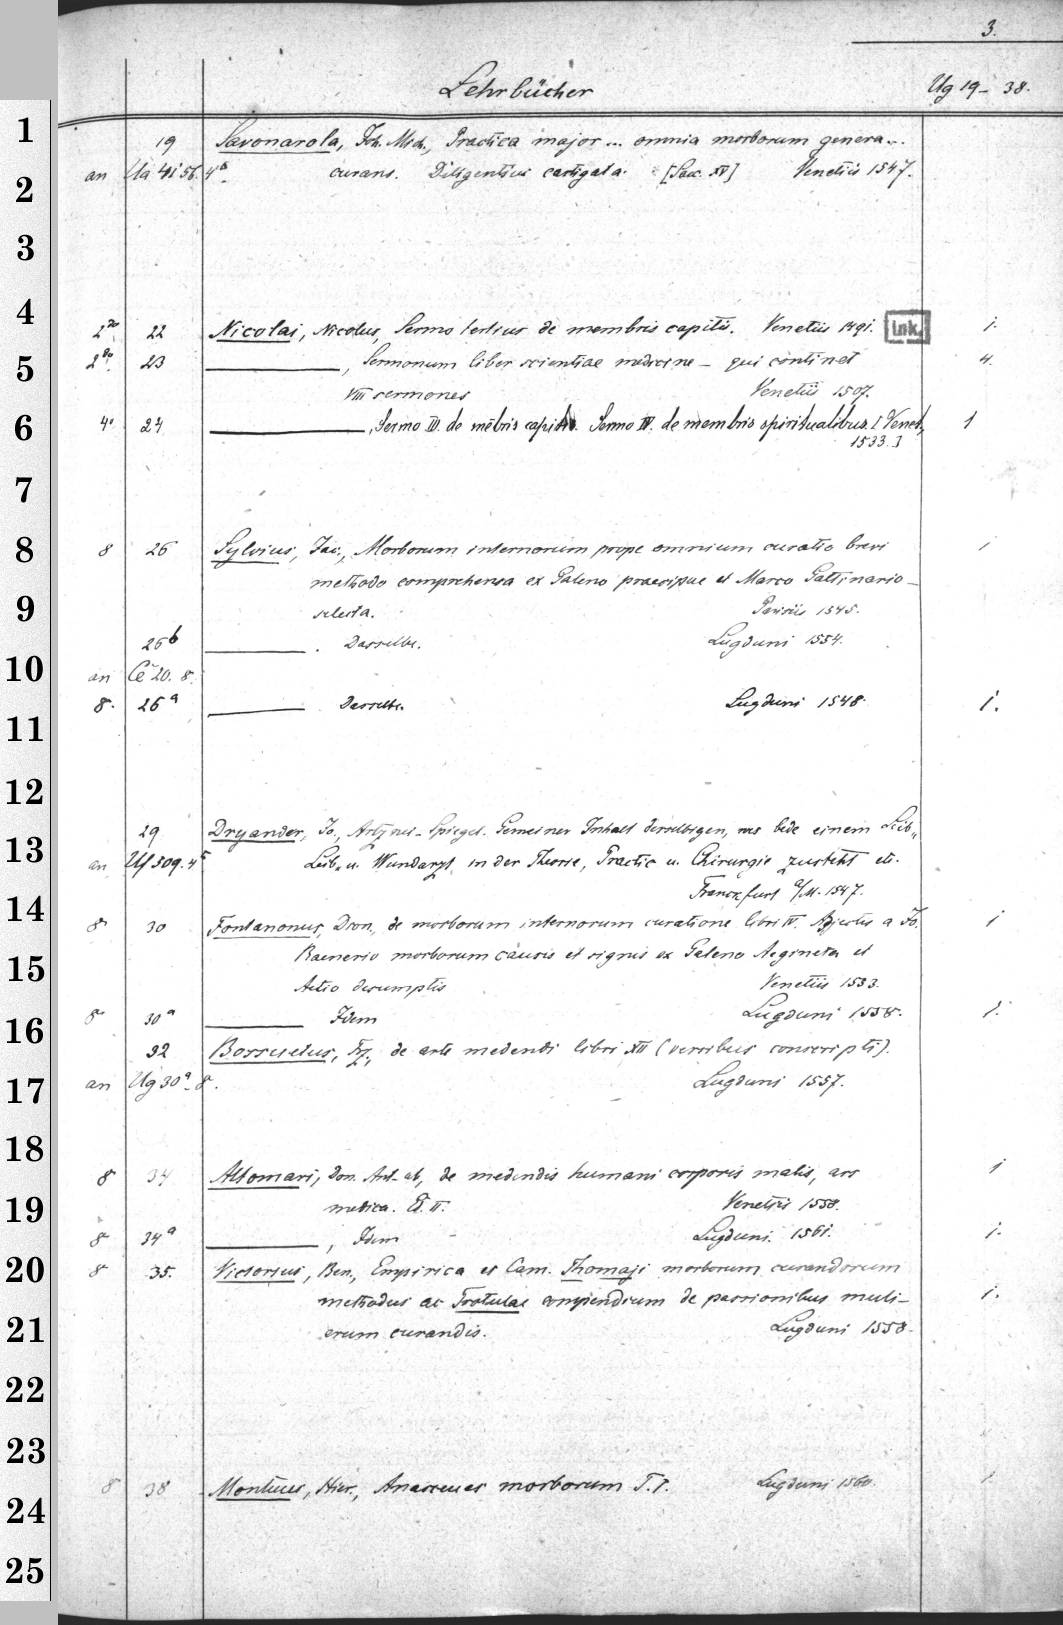 3.
Lehrbücher Ug 19-38.
1 19 Savonarola, Joh. Mich., Practica major ... omnia morborum genera ...
2 an Ua 4156. 4° curans. Diligentius castigata. [Saec. XV] Venetiis 1547.
3
4 2° 22 Nicolai, Nicolus, Sermo tertius de membris capitis. Venetiis 1491. Ink. 1.
5 2° 23 ———, Sermonum liber scientiae medicine – qui continet 4.
VIII sermones Venetiis 1507.
6 4° 24 ———, Sermo III. de mēbris capitis. Sermo IV. de membris spiritualibus. [Venet, 1
1533.]
7
8 8 26 Sylvius, Jac., Morborum internorum prope omnium curatio brevi 1
methodo comprehensa ex Galeno praecipue et Marco Gattinario
9 selecta. Parisiis 1545.
26b ———. Dasselbe. Lugduni 1554.
10 an Ce 20. 8.
8. 26a ——— Dasselbe. Lugduni 1548. 1.
11
12
29 Dryander, Jo., Artznei-Spiegel. Gemeiner Inhalt derselbigen, wes bede einem Leib-
13 an Uf 509. 4° Leib- u. Wundarzt, in der Theorie, Practic u. Chirurgie zusteht etc.
Franckfurt a/M. 1547.
14 8° 30 Fontanonus, Dion., de morborum internorum curatione libri IV. Adjectus a Jo. 1
Raenerio morborum causis et signis ex Galeno Aegineta et
15 Aetio desumptis Venetiis 1553.
16 8° 30a ——— Idem Lugduni 1558. 1.
32 Bossuetus, Fz., de arte medendi libri XII (versibus conscripti).
17 an Ug 30a. 8. Lugduni 1557.
18
8 34 Altomari, Don. Ant. ab, de medendis humani corporis malis, ars 1
19 medica. Ed. II. Venetiis 1558.
8 34a ———, Idem Lugduni. 1561. 1.
20 8 35. Victorius, Ben., Empirica et Cam. Thomaji morborum curandorum
methodus ac Trotulae compendium de passionibus muli- 1.
21 erum curandis. Lugduni 1558.
22
23
8 38 Montuus, Hier., Anasceues morborum T. I. Lugduni 1560. 1.
24
25